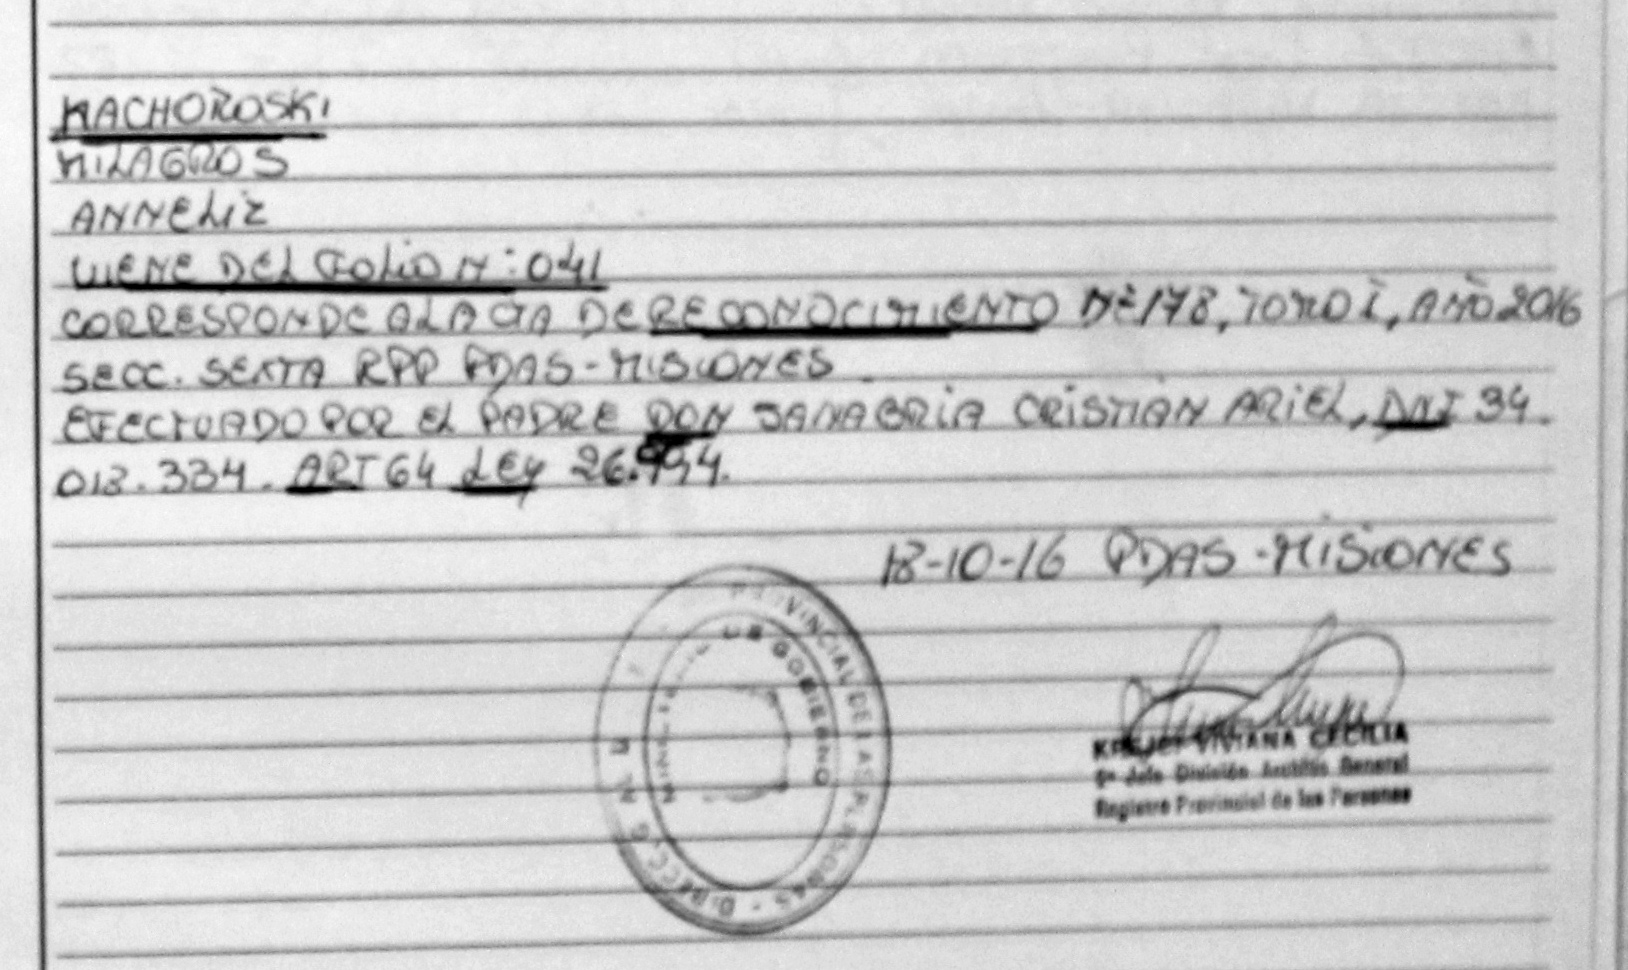 MACHOROSKI
MILAGROS
ANNELIZ
VIENE DEL FOLIO N: 041
CORRESPONDE AL ACTA DE RECONOCIMIENTO Nº 178, TOMO I, AÑO 2016
SECC. SEXTA RPP PDAS-MISIONES
EFECTUADO POR EL PADRE DON SANABRIA CRISTIAN ARIEL, DNI 34.
013.334. ART 64 LEY 26.994.
18-10-16 PDAS-MISIONES
PROVINCIAL DE LAS PERSONAS - DIRECC. G
MINISTERIO DE GOBIERNO
VIVIANA CECILIA
Jefe División Archivo General
Registro Provincial de las Personas